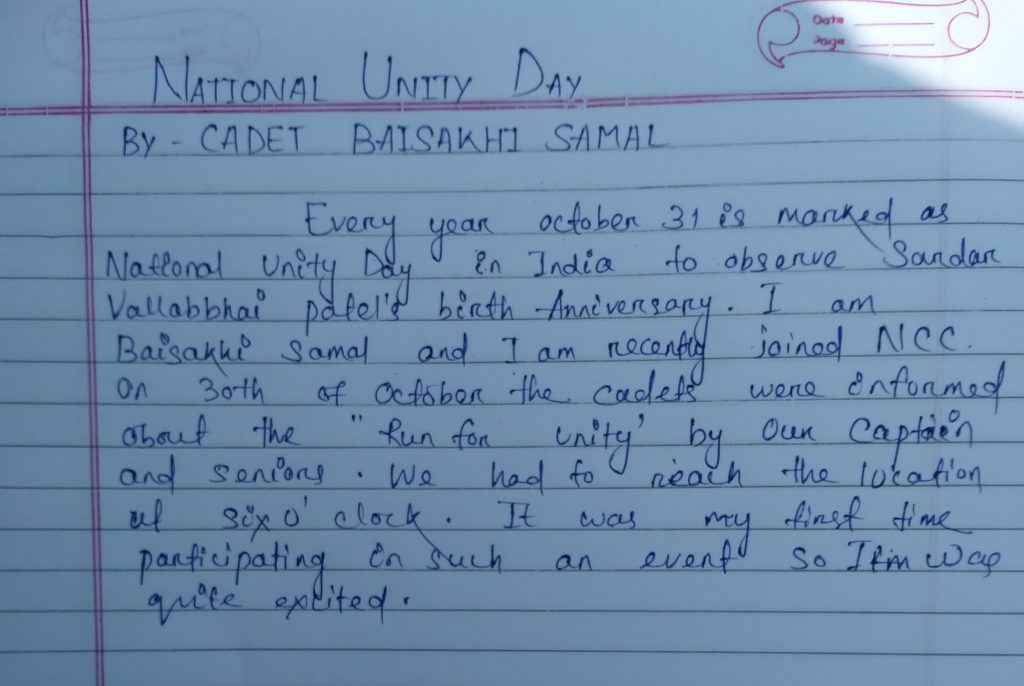 Date
Page
NATIONAL UNITY DAY
BY - CADET BAISAKHI SAMAL
Every year october 31 is marked as
National Unity Day in India to observe Sardar
Vallabbhai patel's birth Anniversary. I am
Baisakhi Samal and I am recently joined NCC.
On 30th of October the cadets were informed
about the "Run for unity' by our Captain
and seniors. We had to reach the location
at six o' clock. It was my first time
participating in such an event so I was
quite excited.